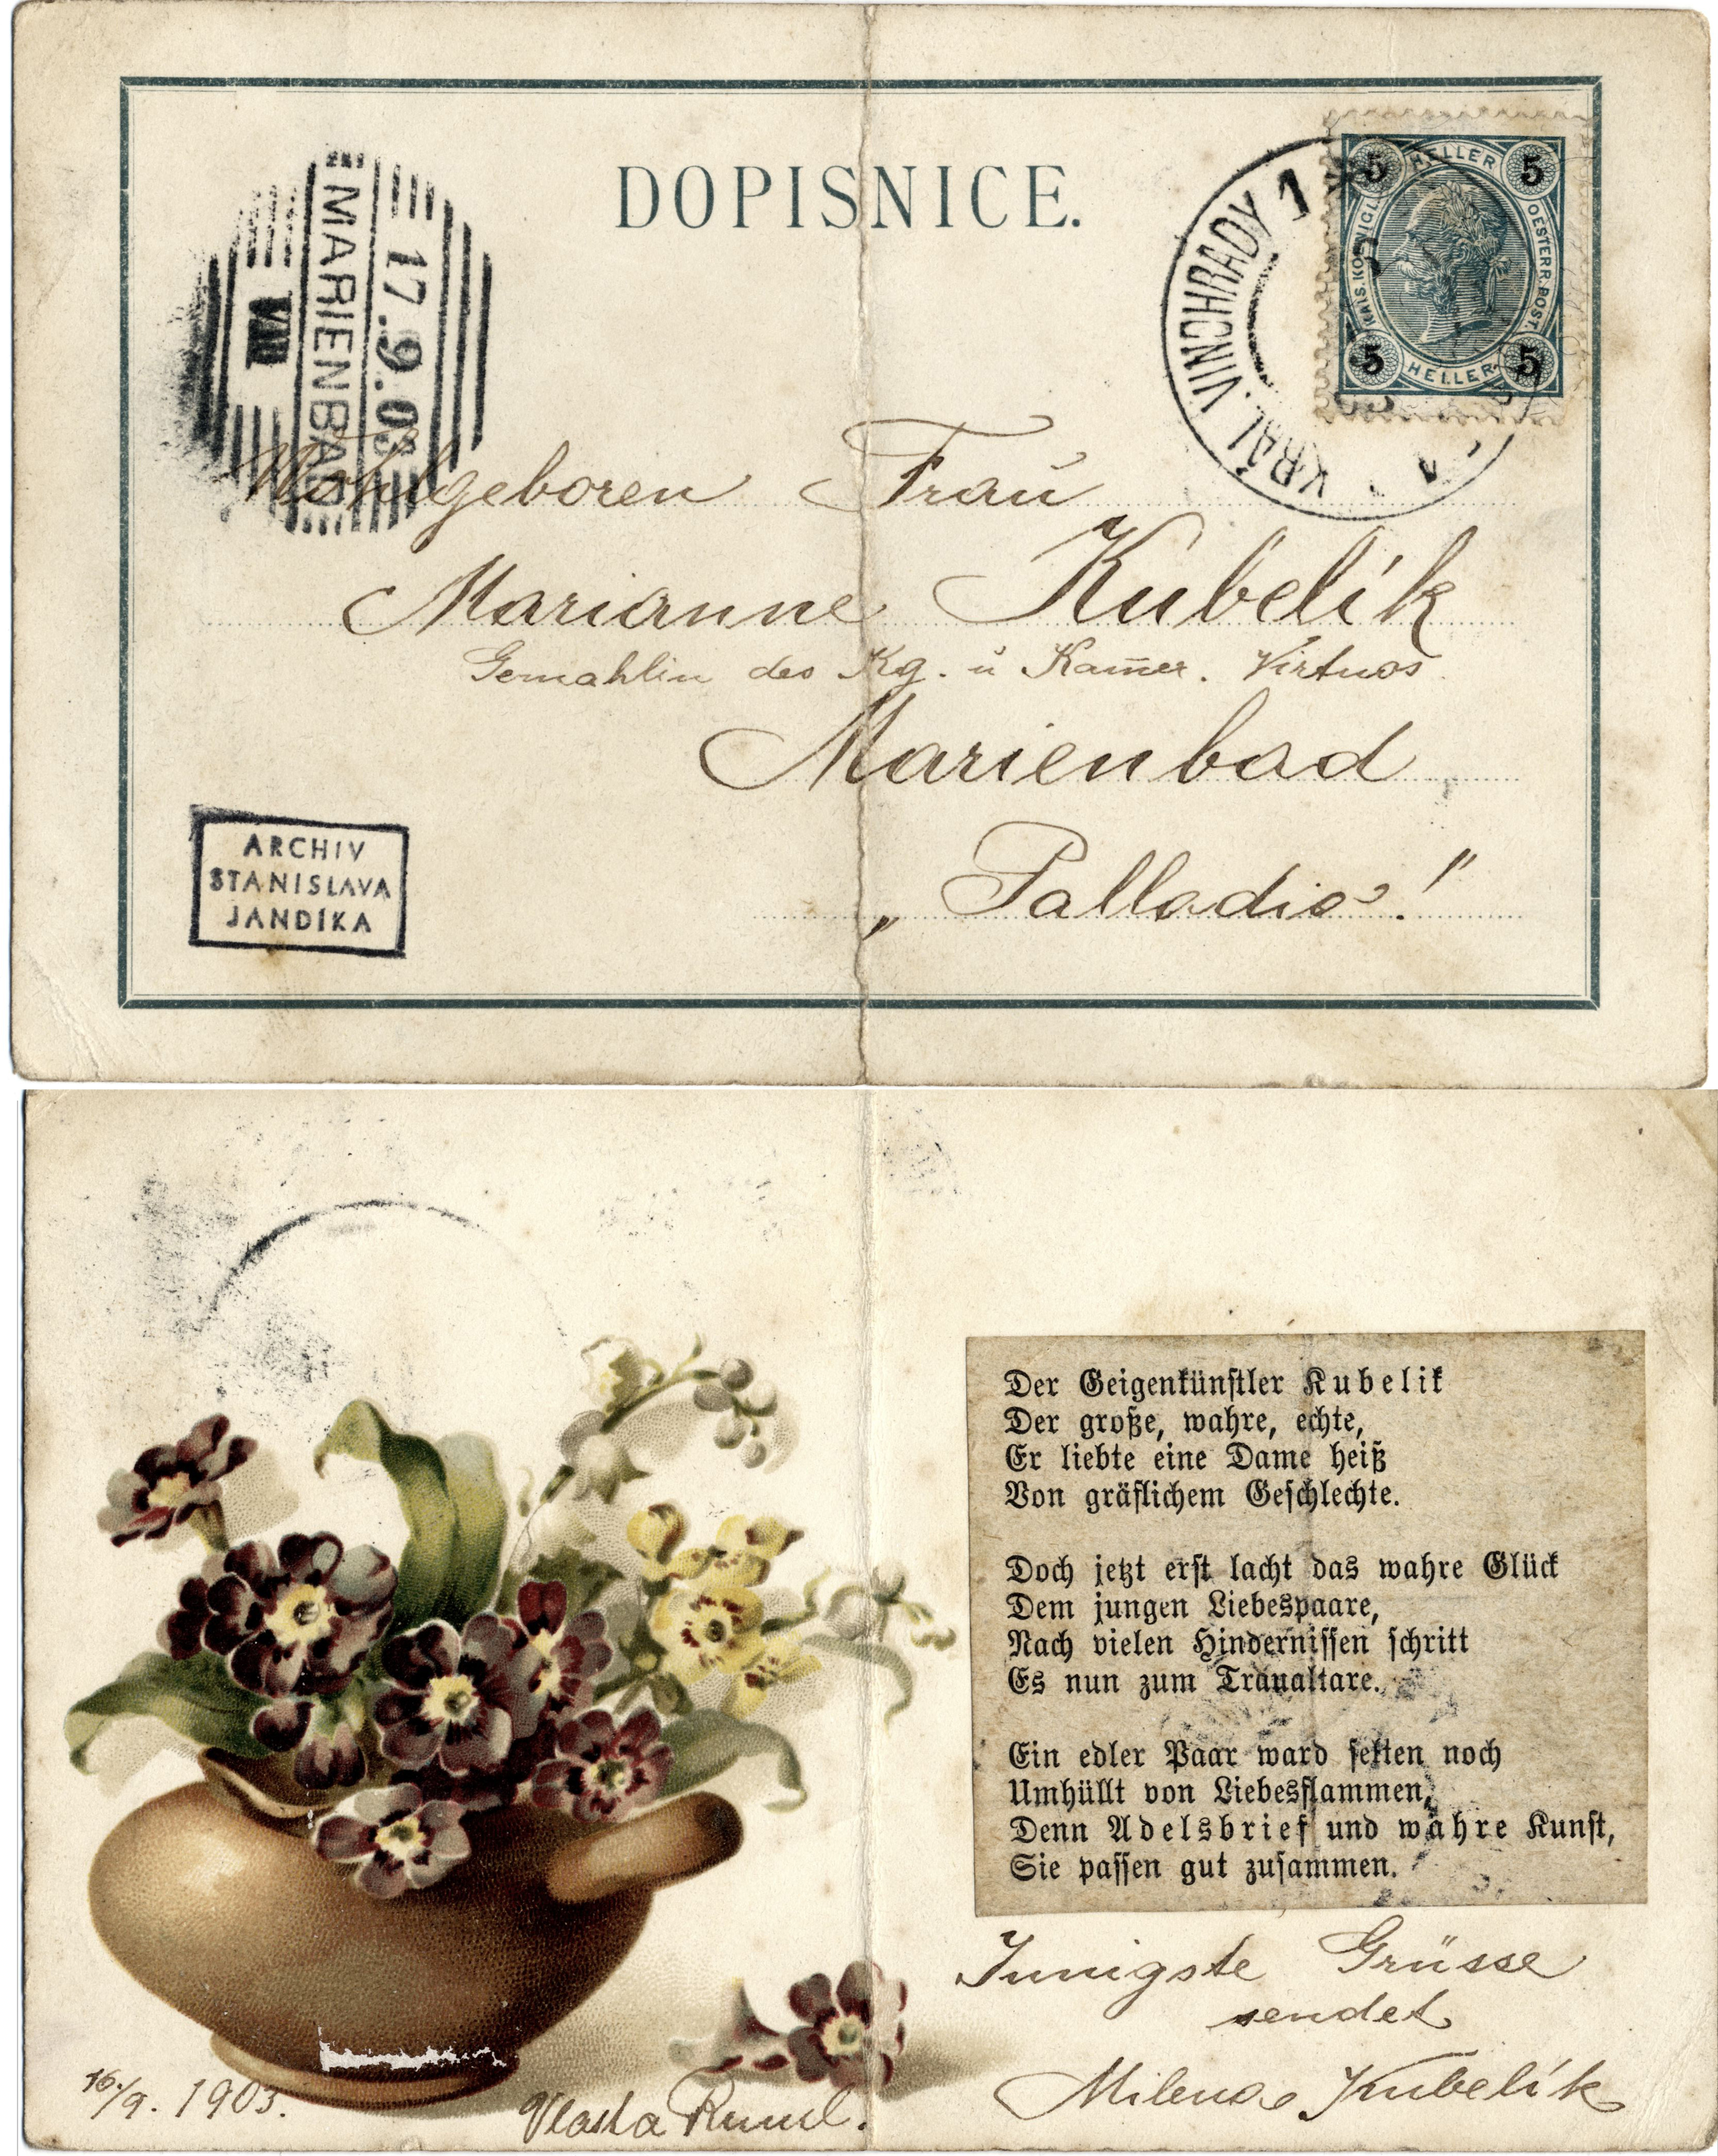 DOPISNICE.
MARIENBAD
17.9.03
VIII
KRÁL. VINOHRADY 1
5 HELLER 5
KAIS. KOENIGL.
OESTERR. POST.
5 HELLER 5
Wohlgeboren Frau
Marianne Kubelík
Gemahlin des Kg. u Kam̄er. Virtuos
Marienbad
„Palladio!"
ARCHIV
STANISLAVA
JANDÍKA
Der Geigenkünstler Kubelik
Der große, wahre, echte,
Er liebte eine Dame heiß
Von gräflichem Geschlechte.
Doch jetzt erst lacht das wahre Glück
Dem jungen Liebespaare,
Nach vielen Hindernissen schritt
Es nun zum Traualtare.
Ein edler Paar ward selten noch
Umhüllt von Liebesflammen,
Denn Adelsbrief und wahre Kunst,
Sie passen gut zusammen.
Innigste Grüsse
sendet
Milena Kubelík
16./9. 1903.
Vlasta